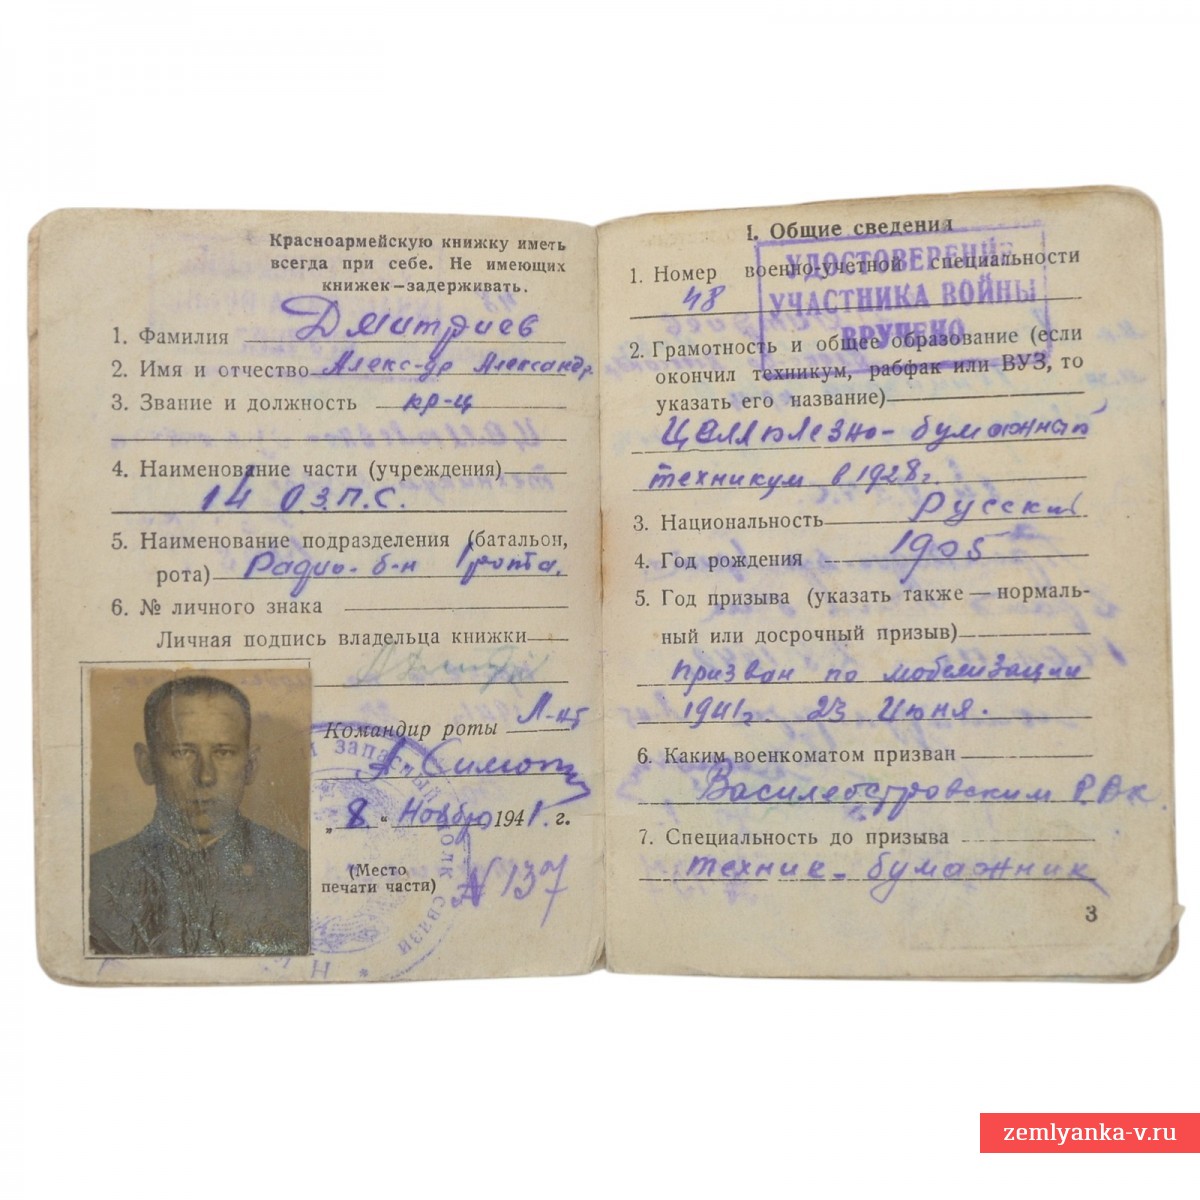 Красноармейскую книжку иметь
всегда при себе. Не имеющих
книжек—задерживать.
1. Фамилия Дмитриев
2. Имя и отчество Алекс-др Александр
3. Звание и должность кр-ц
4. Наименование части (учреждения)
14 О.З.П.С.
5. Наименование подразделения (батальон,
рота) Радио-б-н 1 рота.
6. № личного знака
Личная подпись владельца книжки
Командир роты Л-нт
"8" Ноября 1941 г.
(Место
печати части)
№ 137
запасный полк связи
1. Общие сведения
УДОСТОВЕРЕНИЕ
УЧАСТНИКА ВОЙНЫ
ВРУЧЕНО
1. Номер военно-учетной специальности
48
2. Грамотность и общее образование (если
окончил техникум, рабфак или ВУЗ, то
указать его название)
Целлюлезно-бумажный
техникум в 1928г.
3. Национальность Русский
4. Год рождения 1905
5. Год призыва (указать также — нормаль-
ный или досрочный призыв)
призван по мобелизации
1941г. 23 Июня.
6. Каким военкоматом призван
Василеостровским Р.В.К.
7. Специальность до призыва
техник-бумажник
3
zemlyanka-v.ru